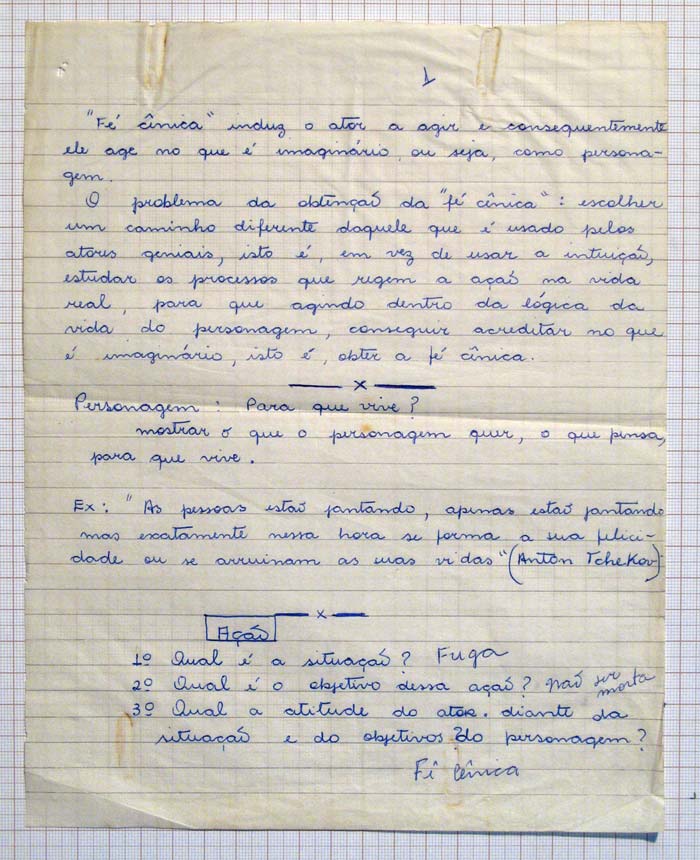 1
"Fé cînica" induz o ator a agir e consequentemente
ele age no que é imaginário, ou seja, como persona-
gem.
O problema da obtençaõ da "fé cînica": escolher
um caminho diferente daquele que é usado pelos
atores geniais, isto é, em vez de usar a intuiçaõ,
estudar os processos que regem a açaõ na vida
real, para que agindo dentro da lógica da
vida do personagem, conseguir acreditar no que
é imaginário, isto é, obter a fé cînica.
x
Personagem: Para que vive?
mostrar o que o personagem quer, o que pensa,
para que vive.
Ex: "As pessoas estaõ jantando, apenas estaõ jantando
mas exatamente nessa hora se forma a sua felici-
dade ou se arruinam as suas vidas" (Anton Tchekov)
x
Açaõ
1º Qual é a situaçaõ? Fuga
2º Qual é o objetivo dessa açaõ? naõ ser morta
3º Qual a atitude do ator. diante da
situaçaõ e do objetivos? do personagem?
Fî cênica